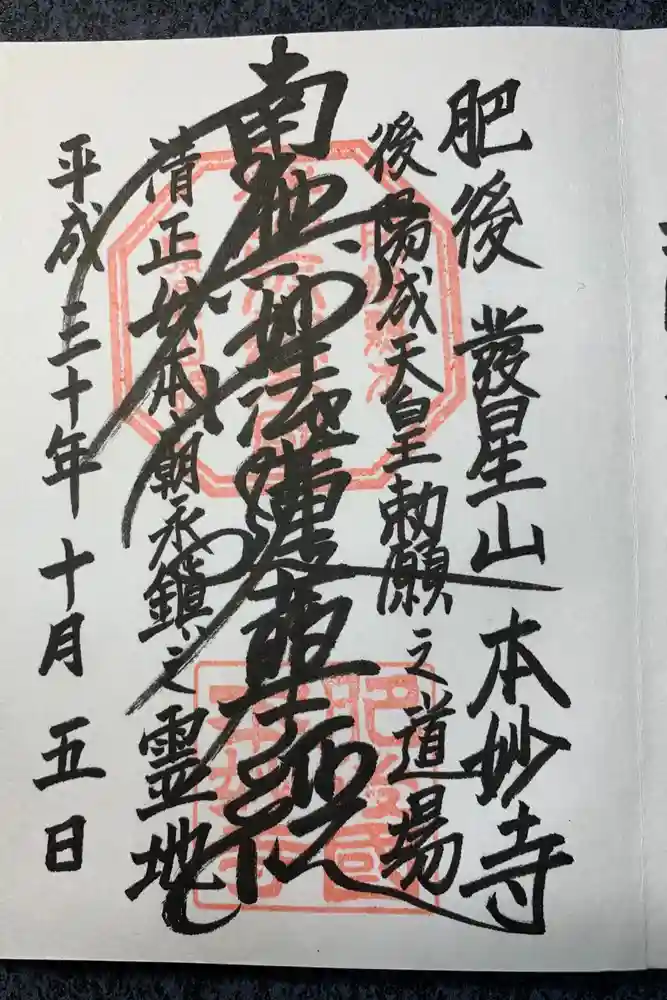 肥後 發星山 本妙寺
後陽成天皇勅願之道場
南無妙法蓮華経
清正公本朝永鎮之霊地
平成三十年十月五日